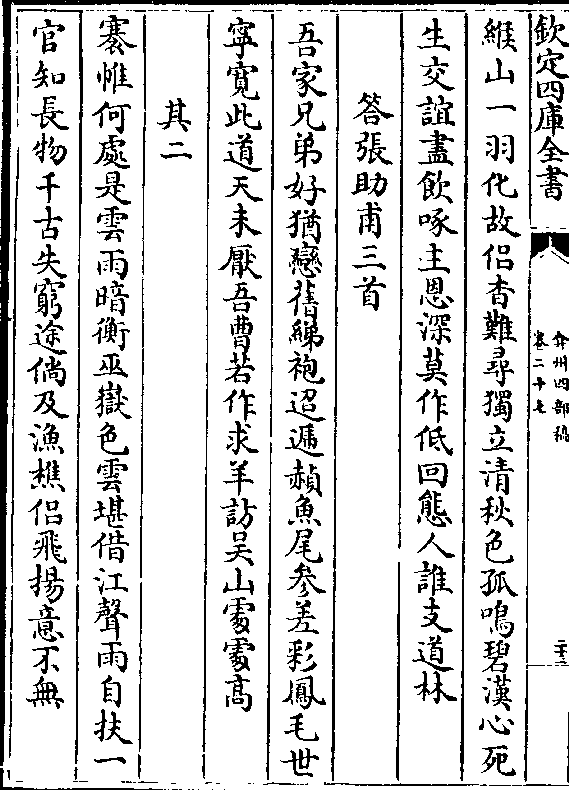 欽定四庫全書
弇州四部稿
卷二十七
二十三
緱山一羽化故侣杳難尋獨立清秋色孤鳴碧漢心死
生交誼盡飲啄主恩深莫作低回態人誰支道林
答張助甫三首
吾家兄弟好猶戀舊綈袍迢遞赬魚尾參差彩鳳毛世
寧寛此道天未厭吾曹若作求羊訪吴山䖏䖏高
其二
褰帷何處是雲雨暗衡巫嶽色雲堪借江聲雨自扶一
官知長物千古失窮途倘及漁樵侣飛揚意不無